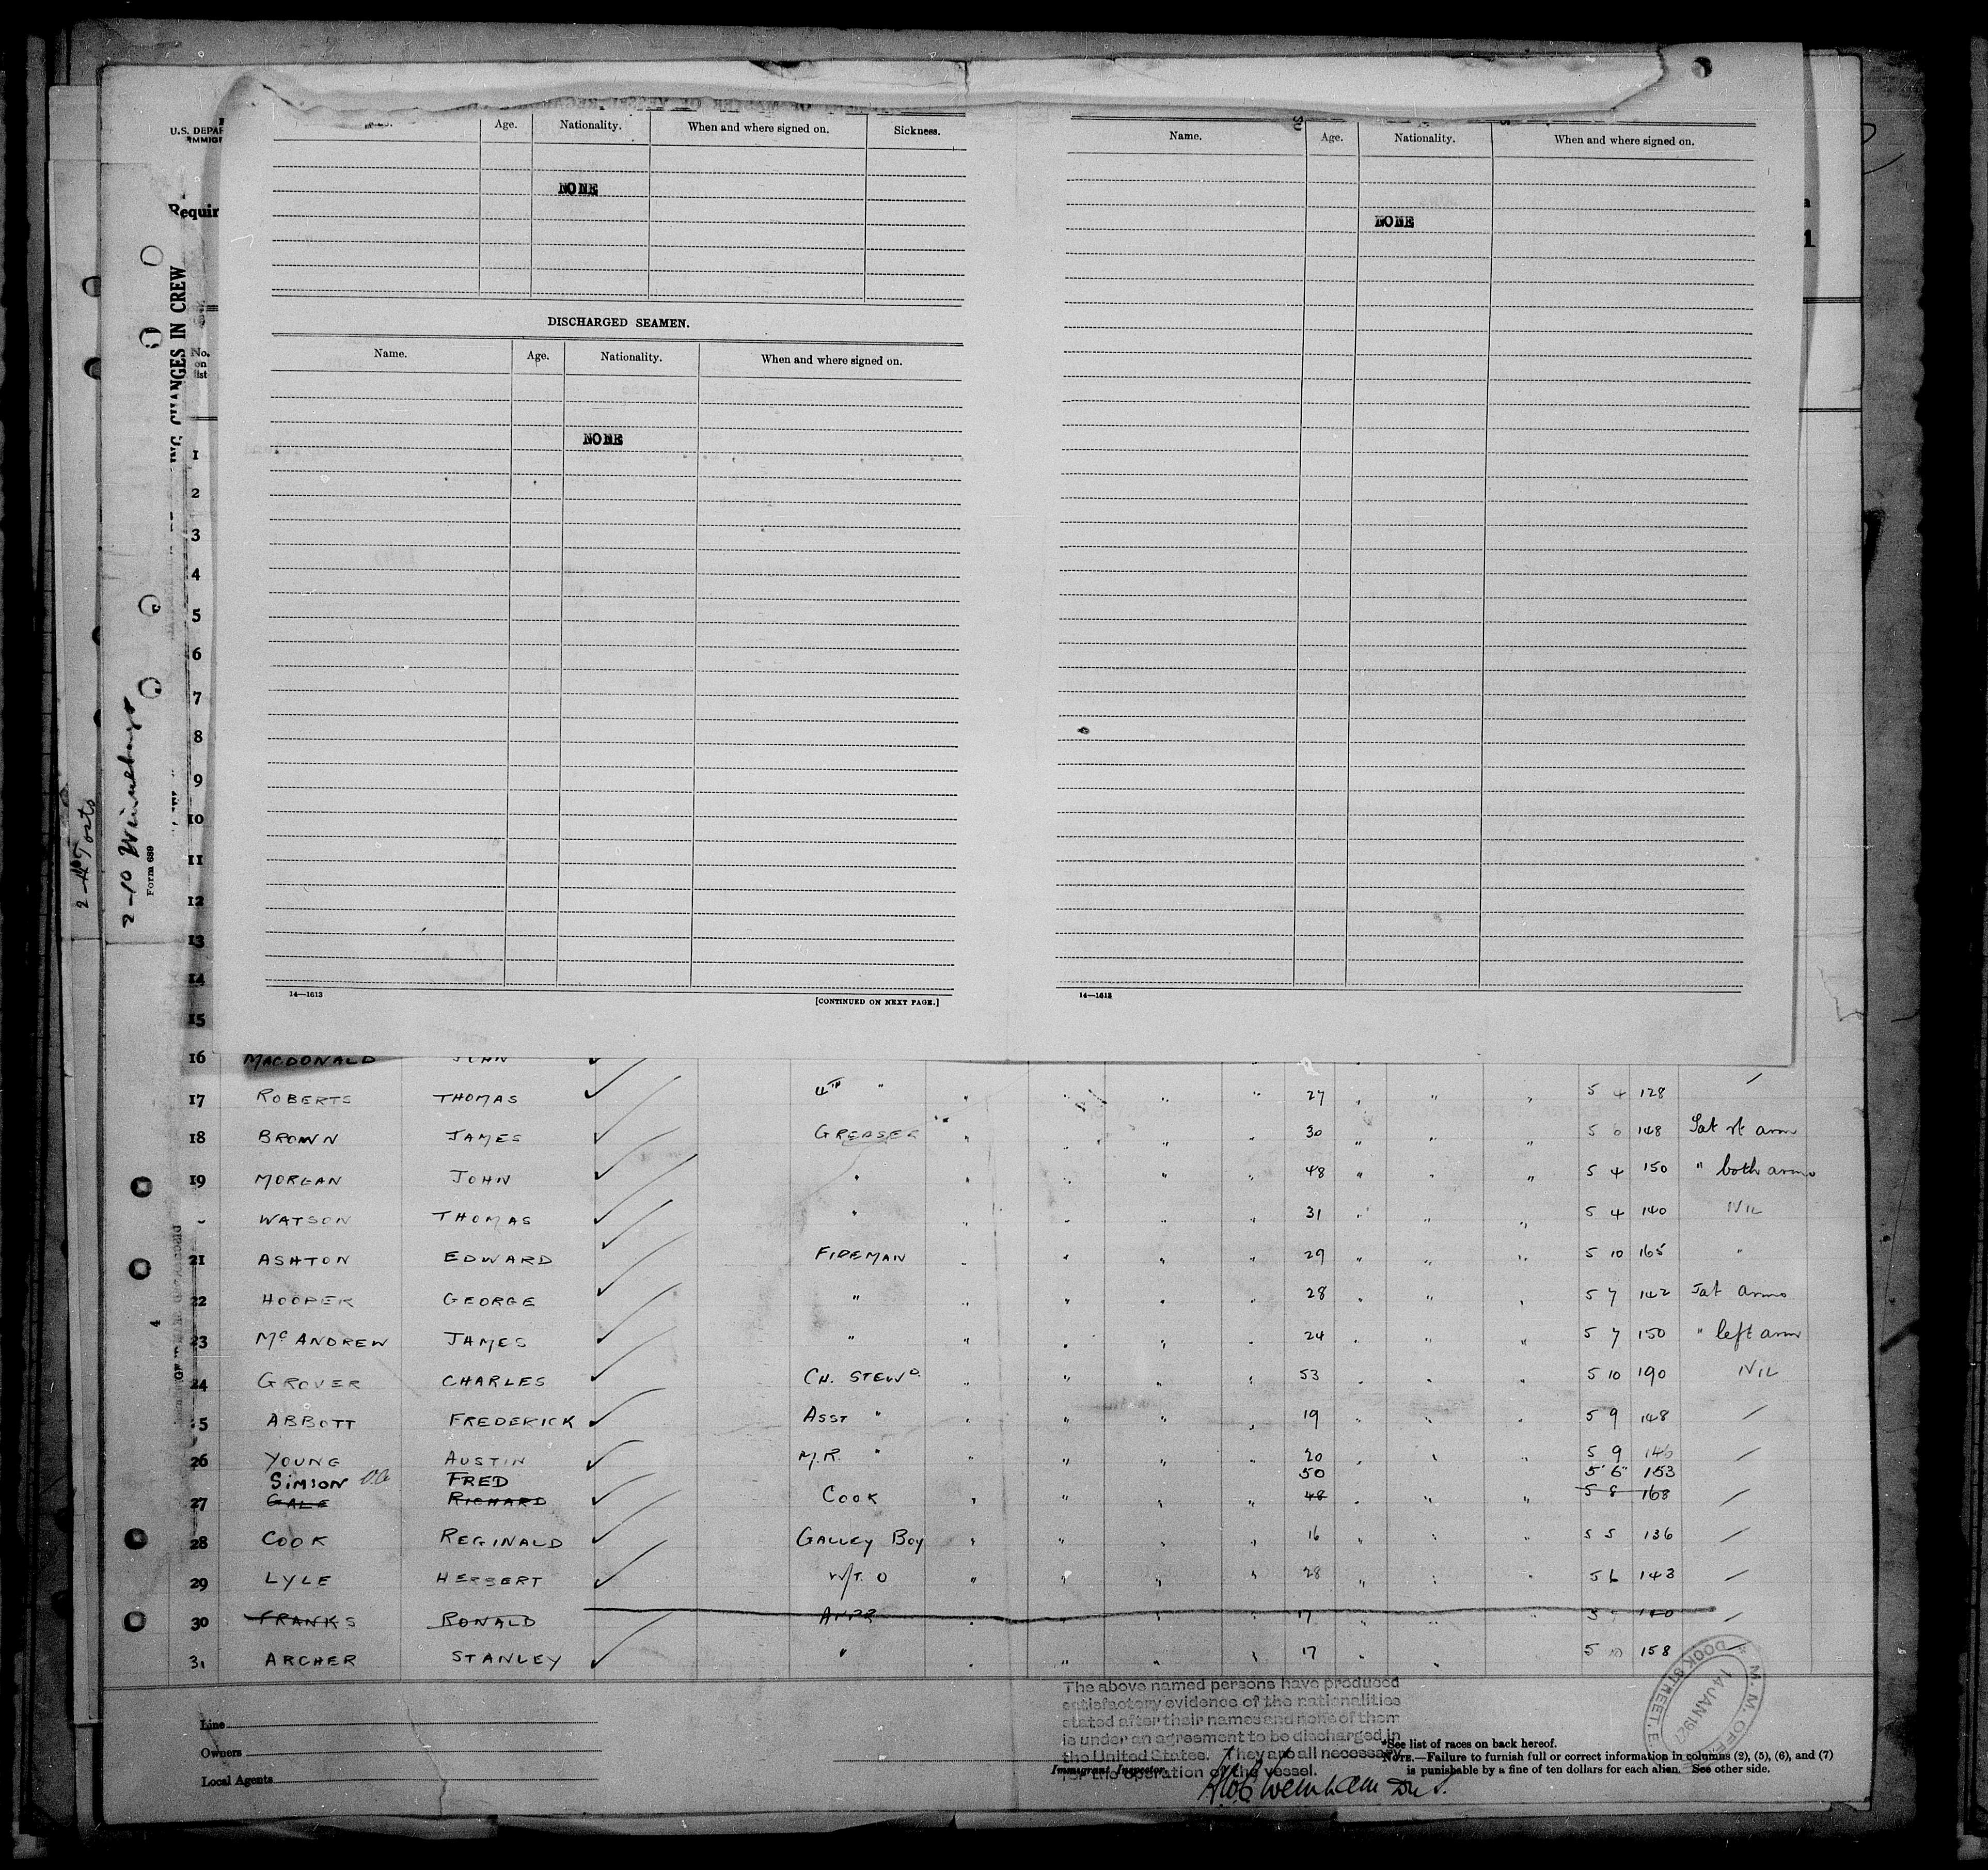 U.S. DEPAR
IMMIG
Requir
CHANGES IN CREW
No. on list
Age. Nationality. When and where signed on. Sickness.
NONE
DISCHARGED SEAMEN.
Name. Age. Nationality. When and where signed on.
NONE
14—1613 [CONTINUED ON NEXT PAGE.]
Name. Age. Nationality. When and where signed on.
NONE
14—1613
2-10
Form 689
1
2
3
4
5
6
7
8
9
10
11
12
13
14
15
16 MACDONALD JOHN
17 ROBERTS THOMAS 4TH " 27 5 4 128
18 BROWN JAMES GREASER 30 5 6 148 Tat rt arm
19 MORGAN JOHN " 48 5 4 150 " both arms
WATSON THOMAS " 31 5 4 140 NIL
21 ASHTON EDWARD FIREMAN 29 5 10 165 "
22 HOOPER GEORGE " 28 5 7 142 Tat arms
23 McANDREW JAMES " 24 5 7 150 " left arm
24 GROVER CHARLES CH. STEWD. 53 5 10 190 NIL
5 ABBOTT FREDERICK ASST " 19 5 9 148
26 YOUNG AUSTIN M.R. " 20 5 9 146
SIMSON FRED 50 5' 6" 153
27 GALE RICHARD COOK 48 5 8 168
28 COOK REGINALD GALLEY BOY 16 5 5 136
29 LYLE HERBERT W/T. O 28 5 6 143
30 FRANKS RONALD 17
31 ARCHER STANLEY " 17 5 10 158
The above named persons have produced
satisfactory evidence of the nationalities
stated after their names and none of them
is under an agreement to be discharged in
the United States. They are all necessary
for the operation of the vessel.
Line
Owners
Local Agents
Immigrant Inspector.
*See list of races on back hereof.
NOTE.—Failure to furnish full or correct information in columns (2), (5), (6), and (7)
is punishable by a fine of ten dollars for each alien. See other side.
M. M. OFFICE
14 JAN 1927
DOCK STREET, E.